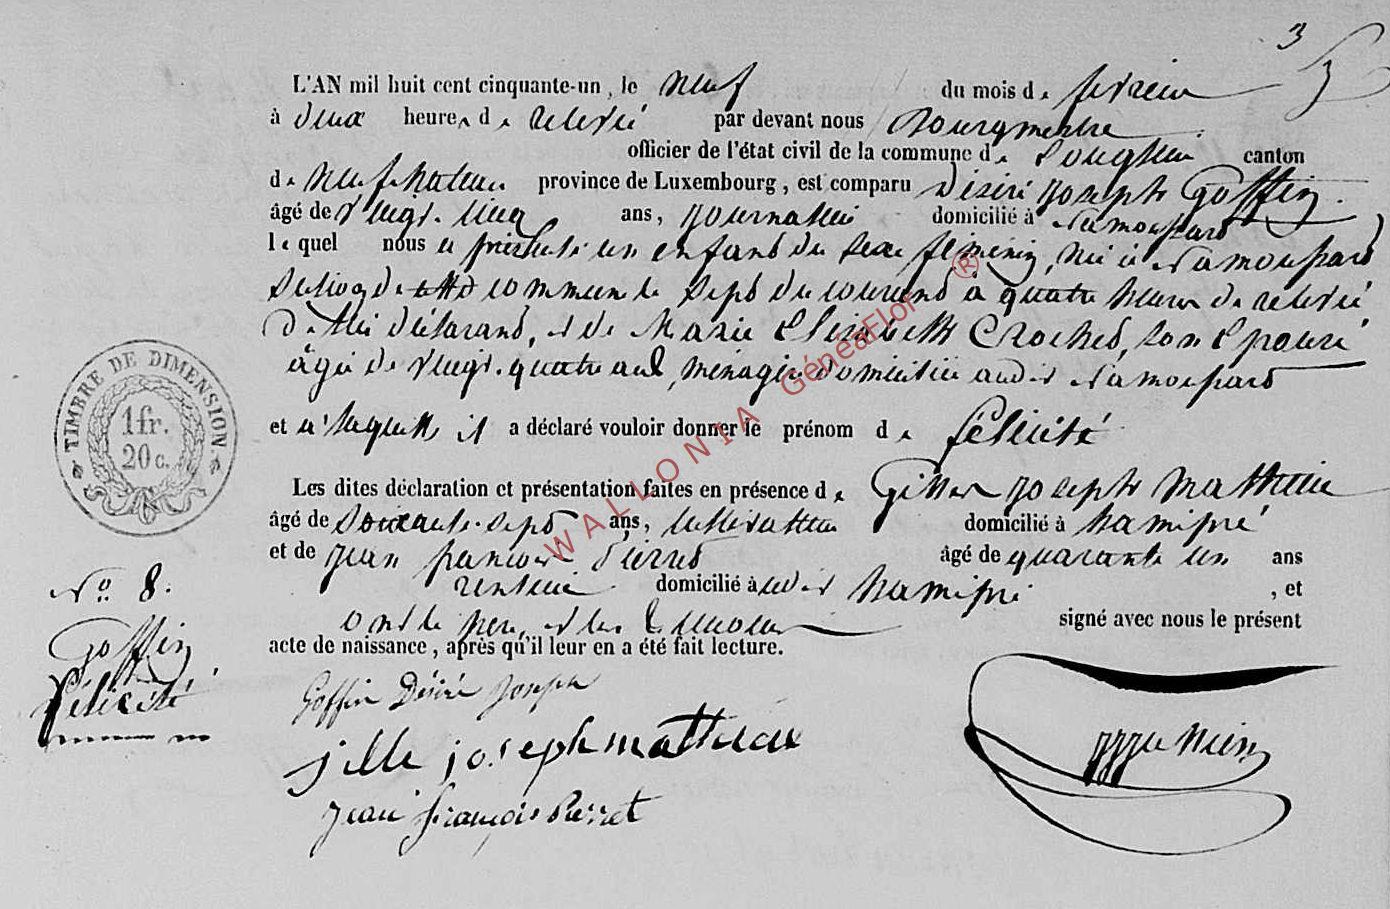 3
L'AN mil huit cent cinquante-un, le neuf du mois de février
à deux heures de relevée par devant nous Bourgmestre
officier de l'état civil de la commune de Longlier canton
de Neufchateau province de Luxembourg, est comparu Désiré Joseph Goffin
âgé de vingt-cinq ans, journalier domicilié à Namoupard
le quel nous a présenté un enfant du sexe féminin, née à Namoupard
section de commune le sept du courant à quatre heures de relevée
de lui déclarant, et de Marie Elisabeth Crochet, son Epouse
âgée de vingt-quatre ans, ménagère domiciliée audit Namoupard
et à laquelle il a déclaré vouloir donner le prénom de Félicité
Les dites déclaration et présentation faites en présence de Gilles Joseph Mathieu
âgé de soixante-sept ans, cultivateur domicilié à hamipré
et de Jean françois Pierret âgé de quarante un ans
rentier domicilié à audit hamipré, et
ont le père, et les témoins signé avec nous le présent
acte de naissance, après qu'il leur en a été fait lecture.
Goffin Désiré Joseph
jille joseph matheieux
Jean françois Pierret
TIMBRE DE DIMENSION
1 fr.
20 c.
No. 8.
Goffin
Félicité
WALLONIA GénéaFlor ®